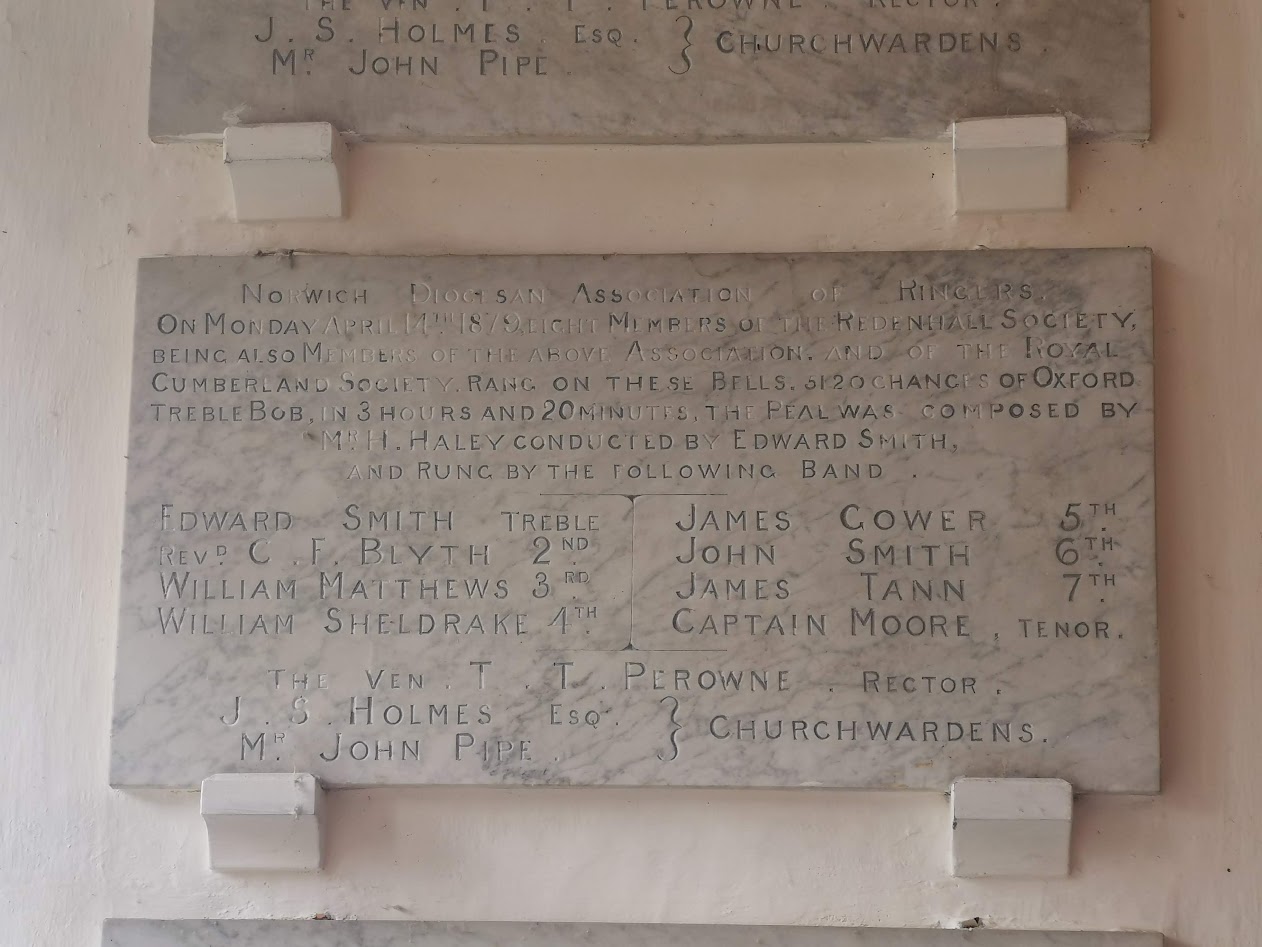 THE VEN . T . T . PEROWNE . RECTOR .
J. S. HOLMES . ESQ. } CHURCHWARDENS .
MR. JOHN PIPE .
NORWICH DIOCESAN ASSOCIATION OF RINGERS.
ON MONDAY APRIL 14TH 1879, EIGHT MEMBERS OF THE REDENHALL SOCIETY,
BEING ALSO MEMBERS OF THE ABOVE ASSOCIATION, AND OF THE ROYAL
CUMBERLAND SOCIETY, RANG ON THESE BELLS, 5120 CHANGES OF OXFORD
TREBLE BOB, IN 3 HOURS AND 20 MINUTES, THE PEAL WAS COMPOSED BY
MR H. HALEY CONDUCTED BY EDWARD SMITH,
AND RUNG BY THE FOLLOWING BAND .
EDWARD SMITH TREBLE
REVD. C. F. BLYTH 2ND
WILLIAM MATTHEWS 3RD
WILLIAM SHELDRAKE 4TH
JAMES GOWER 5TH
JOHN SMITH 6TH
JAMES TANN 7TH
CAPTAIN MOORE , TENOR.
THE VEN . T . T . PEROWNE . RECTOR .
J. S. HOLMES ESQ. } CHURCHWARDENS.
MR. JOHN PIPE .